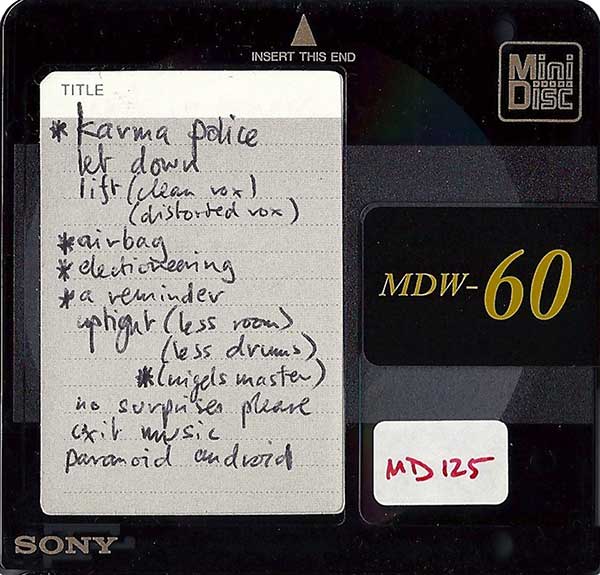 INSERT THIS END
Mini
Disc
TITLE
* karma police
let down
lift (clean vox)
(distorted vox)
* airbag
* electioneering
* a reminder
uptight (less room)
(less drums)
* (nigels master)
no surprises please
exit music
paranoid android
MDW-60
MD 125
SONY